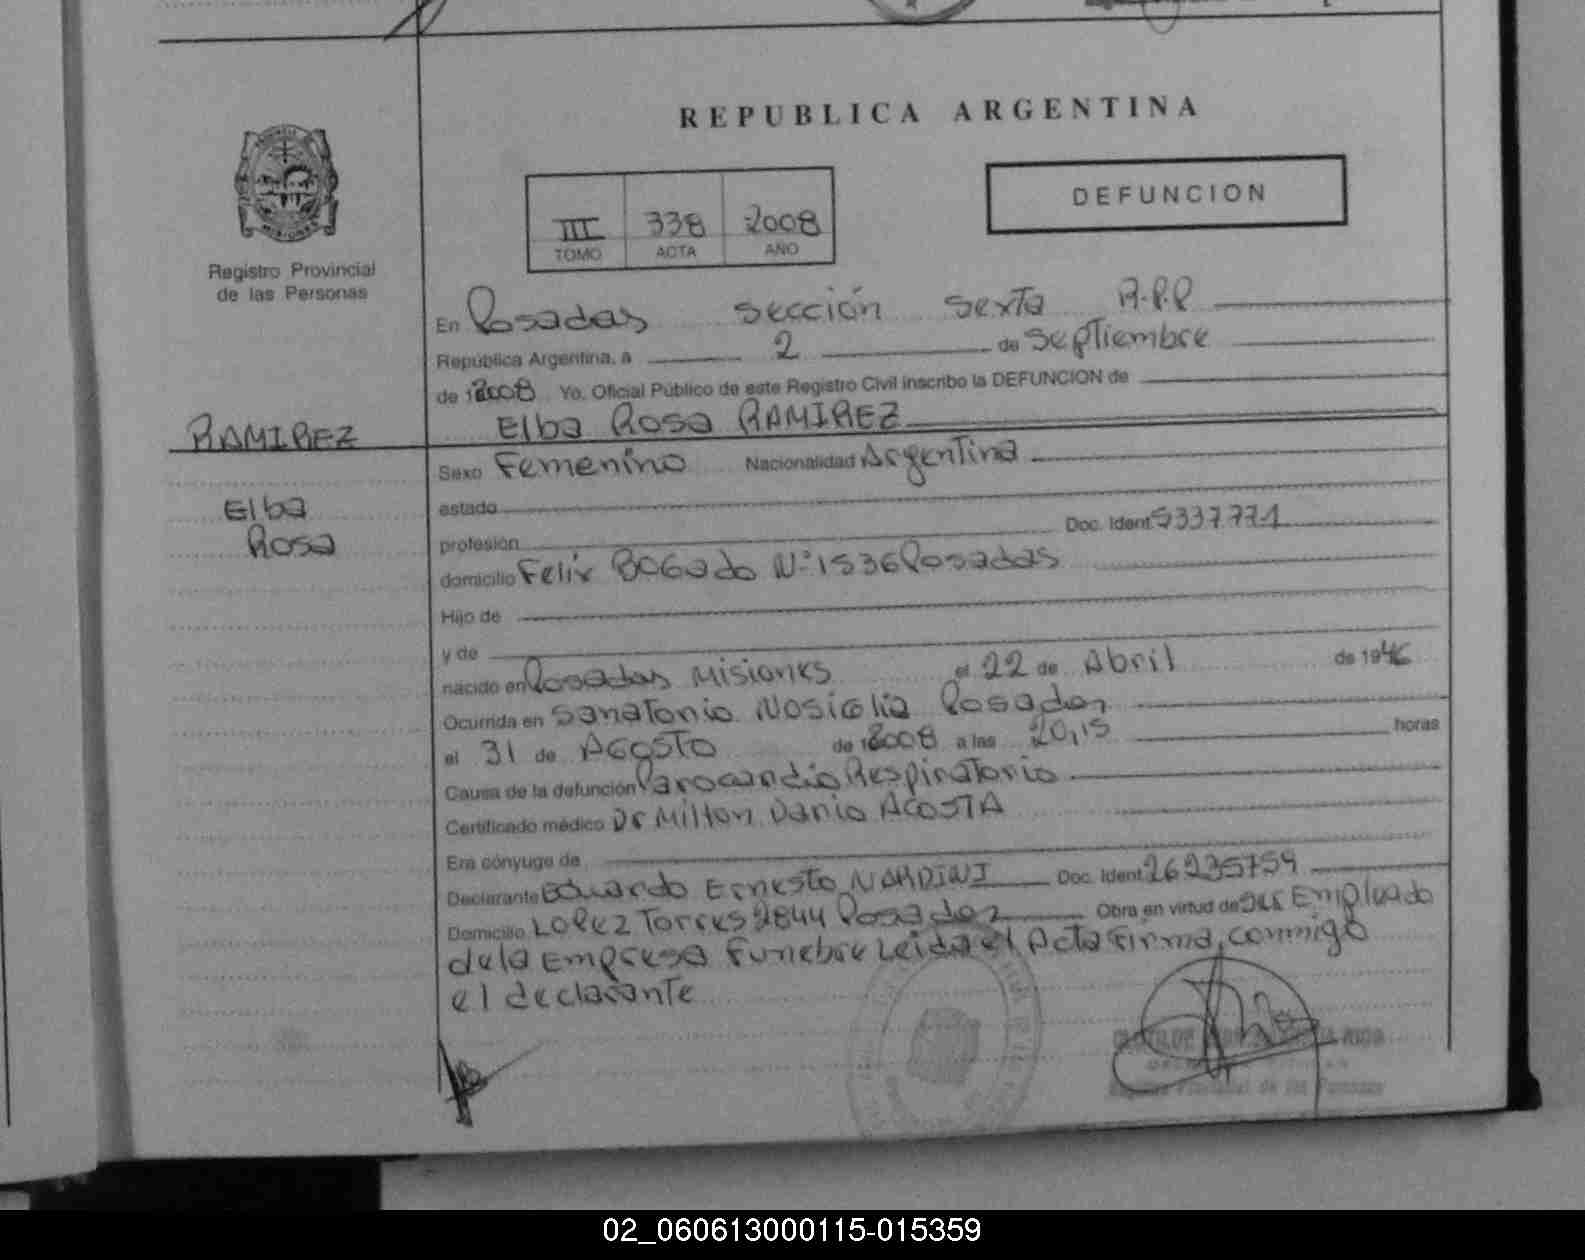 REPUBLICA ARGENTINA
DEFUNCION
III 338 2008
TOMO ACTA AÑO
Registro Provincial
de las Personas
En Posadas sección sexta R.P.P
República Argentina, a 2 de Septiembre
de 2008 Yo, Oficial Público de este Registro Civil inscribo la DEFUNCION de
Elba Rosa RAMIREZ
RAMIREZ
Elba
Rosa
Sexo Femenino Nacionalidad Argentina
estado
profesión Doc. Ident. 5337.771
domicilio Felix BOGado Nº 1536 Posadas
Hijo de
y de
nacido en Posadas Misiones el 22 de Abril de 1946
Ocurrida en Sanatorio Nosiglia Posadas
el 31 de AGOSTO de 2008 a las 20,15 horas
Causa de la defunción Parocardio Respiratorio
Certificado médico Dr Milton Dario ACOSTA
Era cónyuge de
Declarante Eduardo Ernesto NARDINI Doc. Ident. 26235759
Domicilio LOPEZ Torres 2844 Posadas Obra en virtud de ser Empleado
de la Empresa Funebre Leida el Acta Firma, conmigo
el declarante
Registro Provincial de las Personas
02_060613000115-015359